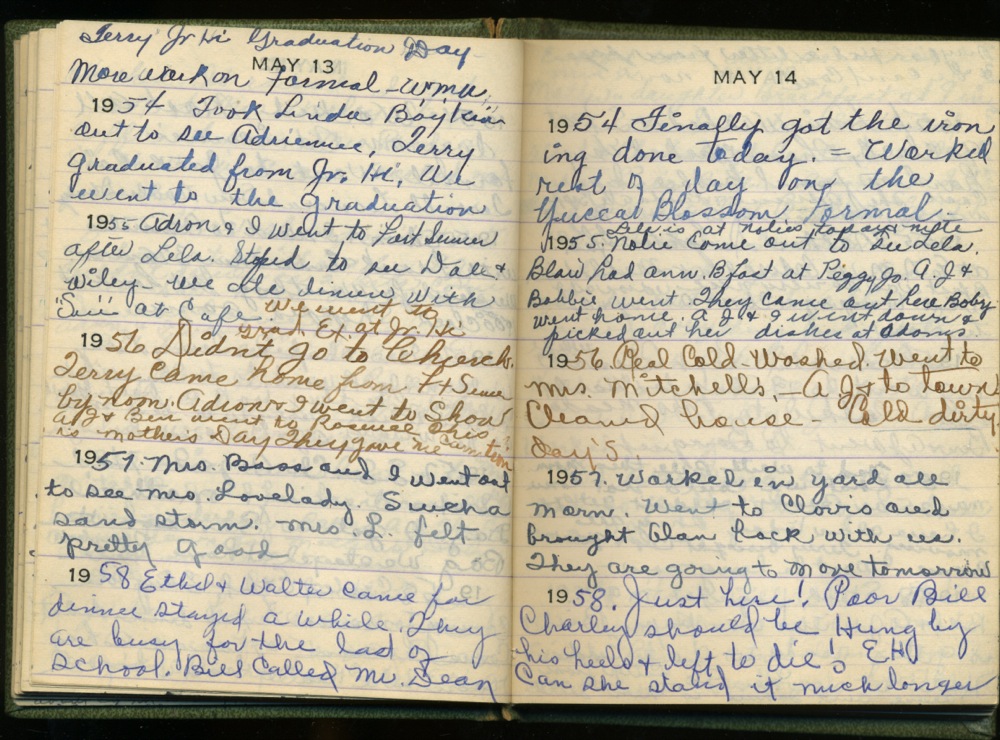 Terry Jr Hi Graduation Day
MAY 13
More work on Formal - WMU
1954 Took Linda Boykin
out to see Adrienne, Terry
graduated from Jr. Hi. We
went to the graduation
1955 Adron & I went to Fort Sumner
after Lela. Stoped to see Dale &
Wiley - We ate dinner with
"Sis" at Cafe. We went to
Grad. Ex. at Jr. Hi
1956 Didn't go to Church.
Terry came home from Ft Sumner
by noon. Adron & I went to Show
A J & Ben went to Roswell This
is Mothers Day They gave me
1957. Mrs. Bass and I went out
to see Mrs. Lovelady. Such a
sand storm. Mrs. L. felt
pretty good
1958 Ethel & Walter came for
dinner stayed a while. They
are busy for the last of
school. Bill Called Mr. Dean
MAY 14
1954 Finally got the iron
ing done today. = Worked
rest of day on the
Yucca Blossom Formal -
Lela is at Nolies to pass nite
1955. Nolie come out to see Lela.
Blair had ann. Bfast at Peggy Jo. A. J &
Bobbie went They came out here Boby
went home. A J & I went down &
picked out her dishes at Adams
1956. Real Cold - Washed. Went to
Mrs. Mitchells, - A J & to town
Cleaned house - Cold dirty
day's.
1957. Worked in yard all
morn. Went to Clovis and
brought Glan back with us.
They are going to move tomorrow
1958. Just here! Poor Bill
Charley should be Hung by
his heels & left to die! EH
Can she stand it much longer